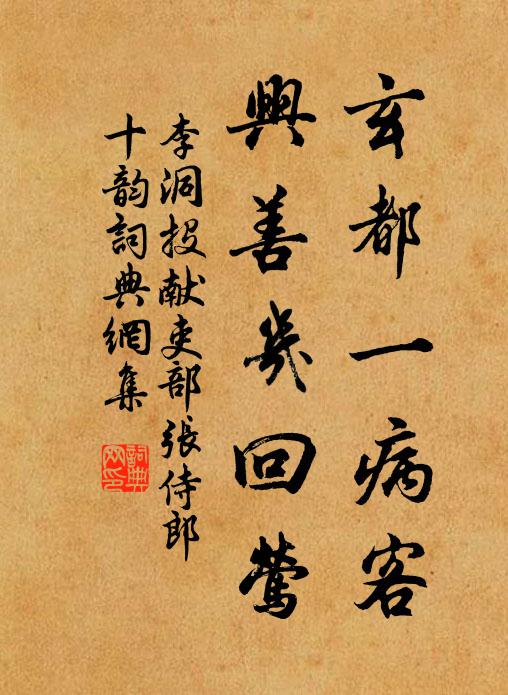 玄都一病客
興善幾回鶯
李洞投献吏部張侍郎
十韵詞典網集
詞典
网印